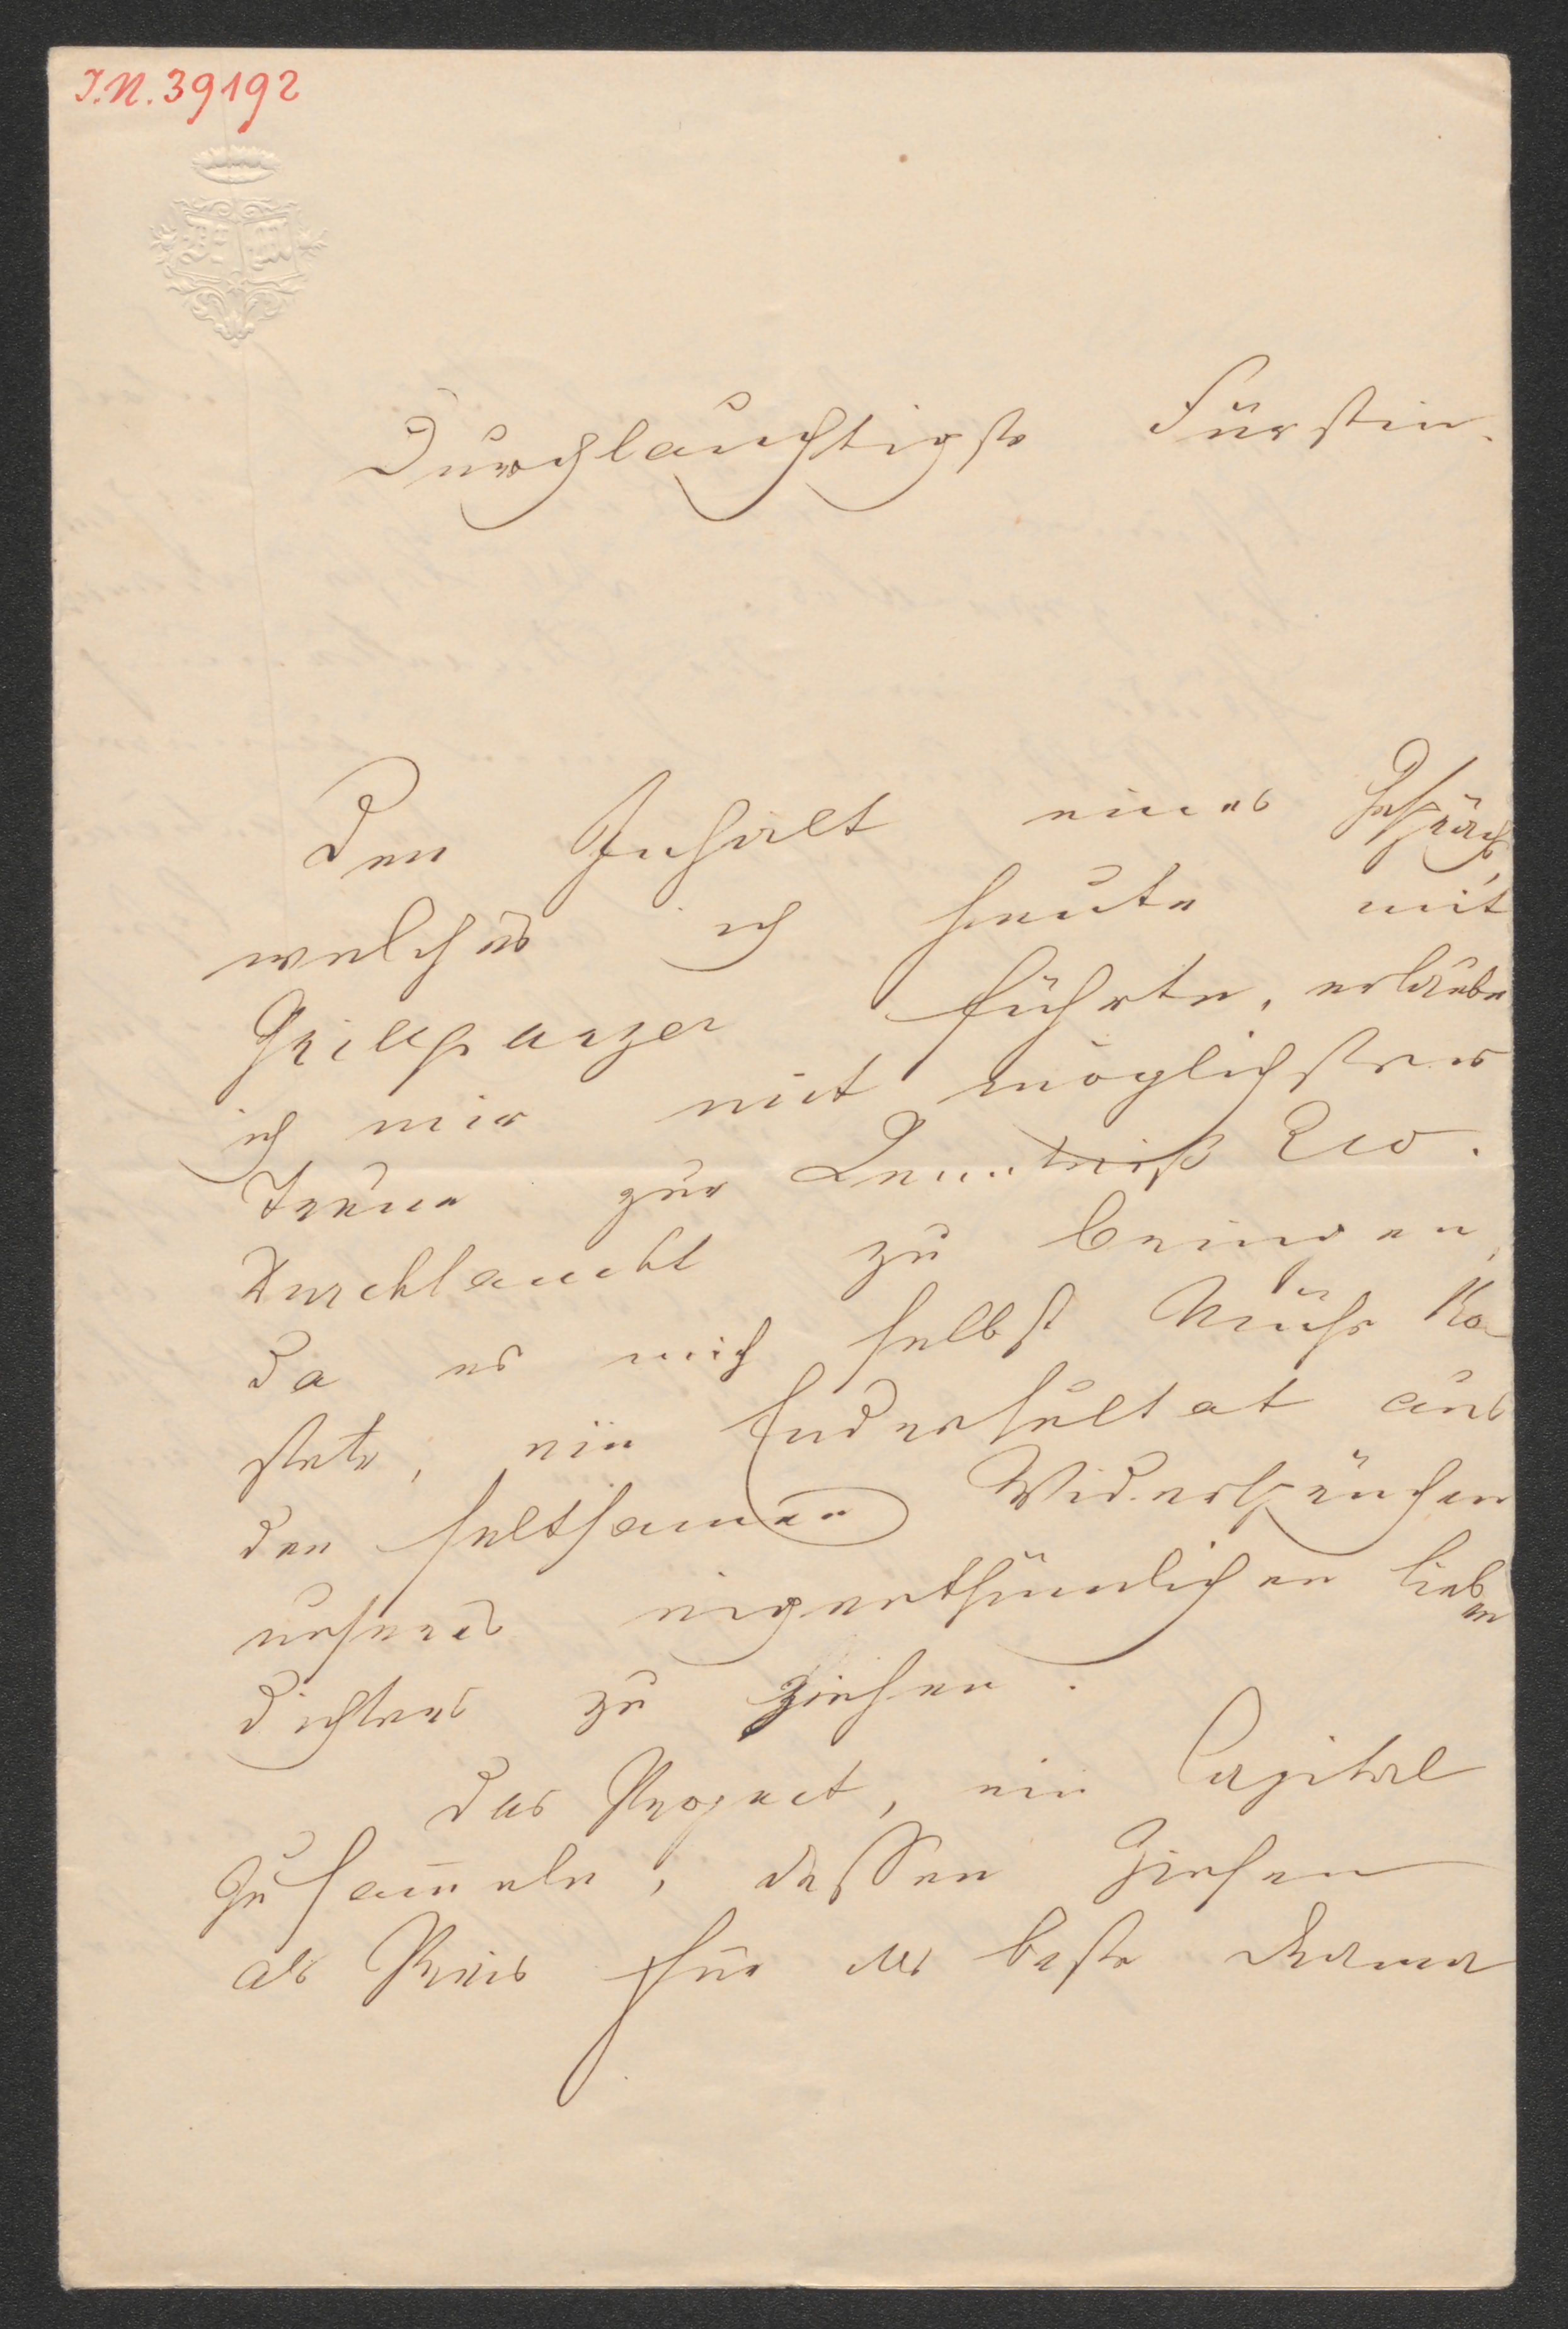 I.N. 39192
Durchlauchtigste Fürstin.
Den Inhalt eines Gespräch's,
welches ich heute mit
Grillparzer führte, erlaube
ich mir mit möglichster
Treue zur Kenntniß Euer.
Durchlaucht zu bringen,
da es mich selbst Mühe ko-
stete, ein Endresultat aus
den seltsamen Widersprüchen
unseres eigenthümlichen lieben
Dichters zu ziehen.
Das Project, ein Capital
zu sam̄eln, dessen Zinsen
als Preis für das beste Drama